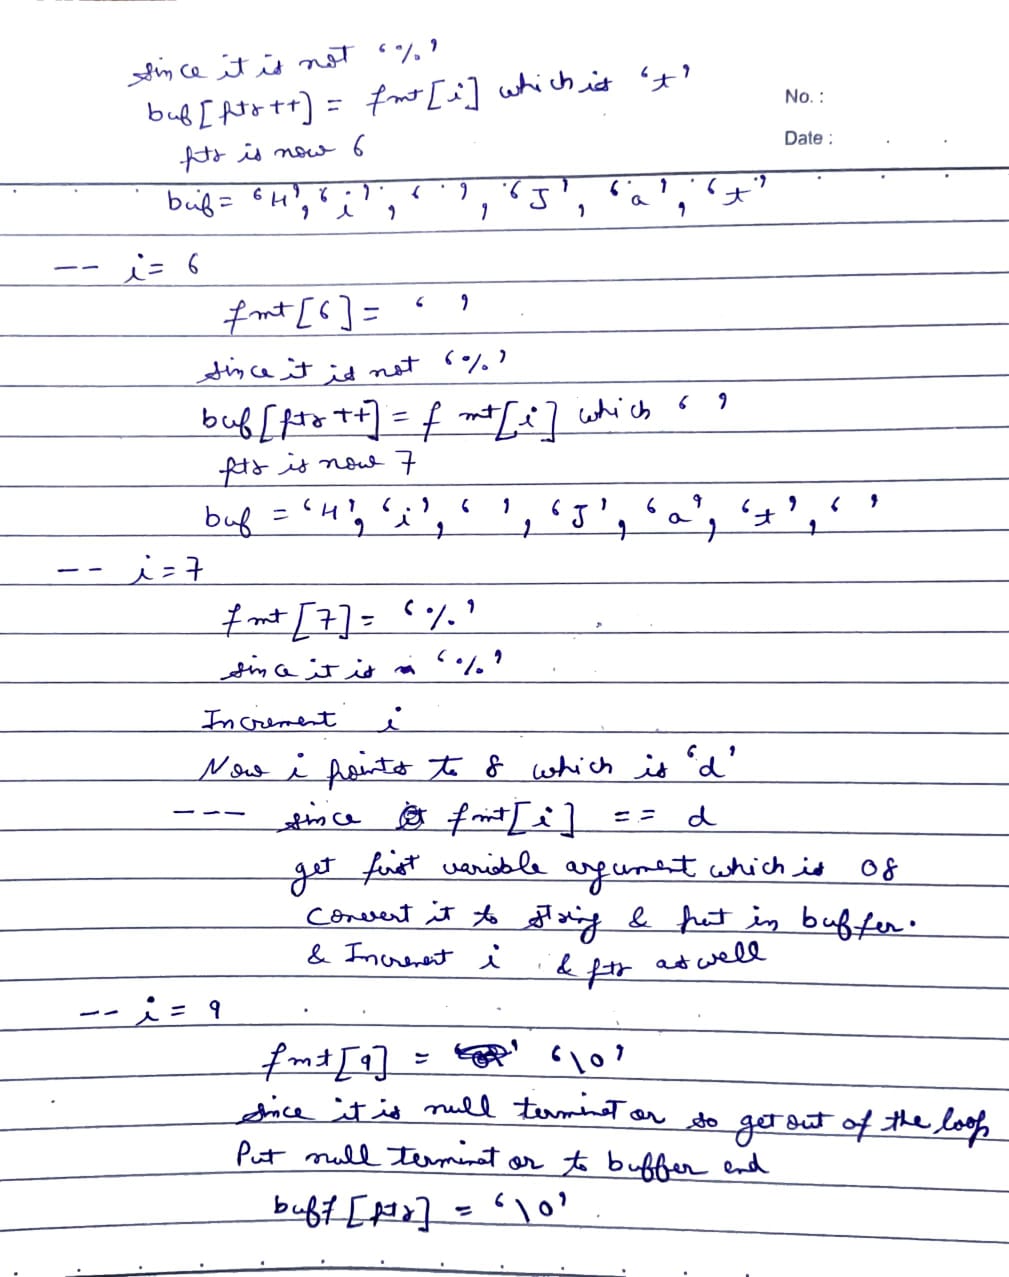 since it is not '%'
buf[ptr++] = fmt[i] which is 't'
No. :
Date :
ptr is now 6
buf = 'H', 'i', ' ', 'J', 'a', 't'
-- i = 6
fmt[6] = ' '
since it is not '%'
buf[ptr++] = fmt[i] which ' '
ptr is now 7
buf = 'H', 'i', ' ', 'J', 'a', 't', ' '
-- i = 7
fmt[7] = '%'
since it is '%'
Increment i
Now i points to 8 which is 'd'
--- since fmt[i] == d
get first variable argument which is 08
Convert it to string & put in buffer.
& Increment i & ptr as well
-- i = 9
fmt[9] = '\0'
since it is null terminator so get out of the loop
Put null terminator to buffer end
buff[ptr] = '\0'